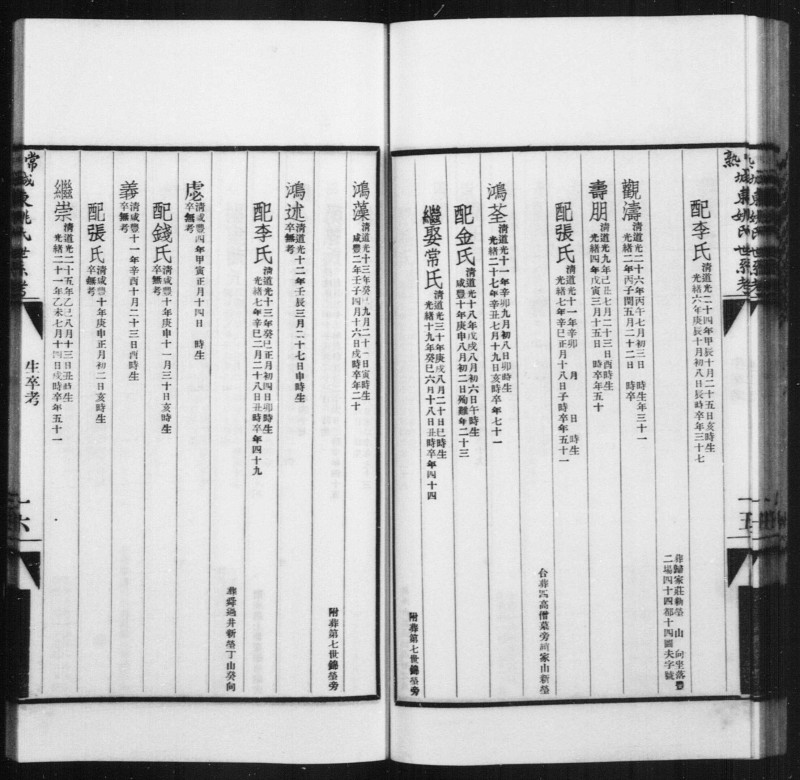 熟城東姚氏世系考
配李氏 清道光二十四年甲辰十月二十五日亥時生
光緒六年庚辰十月初八日辰時卒年三十七
葬歸家莊新塋 山 向坐落豐
二場四十四都十四圖夫字號
觀濤 清道光二十六年丙午七月初三日 時生年三十一
光緒二年丙子閏五月二十二日 時卒
壽朋 清道光九年己丑七月二十三日酉時生
光緒四年戊寅三月十五日 時卒年五十
配張氏 清道光十一年辛卯 月 日 時生
光緒七年辛巳正月十八日子時卒年五十一
鴻荃 清道光十一年辛卯九月初八日卯時生
光緒二十七年辛丑七月十九日亥時卒年七十一
配金氏 清道光十八年戊戌八月初六日午時生
咸豐十年庚申八月初二日殉難年二十三
繼娶常氏 清道光三十年庚戌八月二十日巳時生
光緒十九年癸巳六月十八日丑時卒年四十四
附葬第七世錦塋旁
一五
鴻藻 清道光十三年癸巳九月二十一日寅時生
咸豐二年壬子四月十六日戌時卒年二十
附葬第七世錦塋旁
鴻述 清道光十二年壬辰三月二十七日申時生
卒無考
配李氏 清道光十三年癸巳正月初四日卯時生
光緒七年辛巳二月二十八日丑時卒年四十九
新塋丁山癸向
處 清咸豐四年甲寅正月十四日 時生
卒無考
配錢氏 清咸豐十年庚申十一月三十日亥時生
卒無考
義 清咸豐十一年辛酉十月二十三日酉時生
卒無考
配張氏 清咸豐十年庚申正月初二日亥時生
卒無考
繼崇 清道光二十五年乙巳八月十三日丑時生
光緒二十一年乙未七月十四日戌時卒年五十一
常
城東姚氏世系考
生卒考
一六